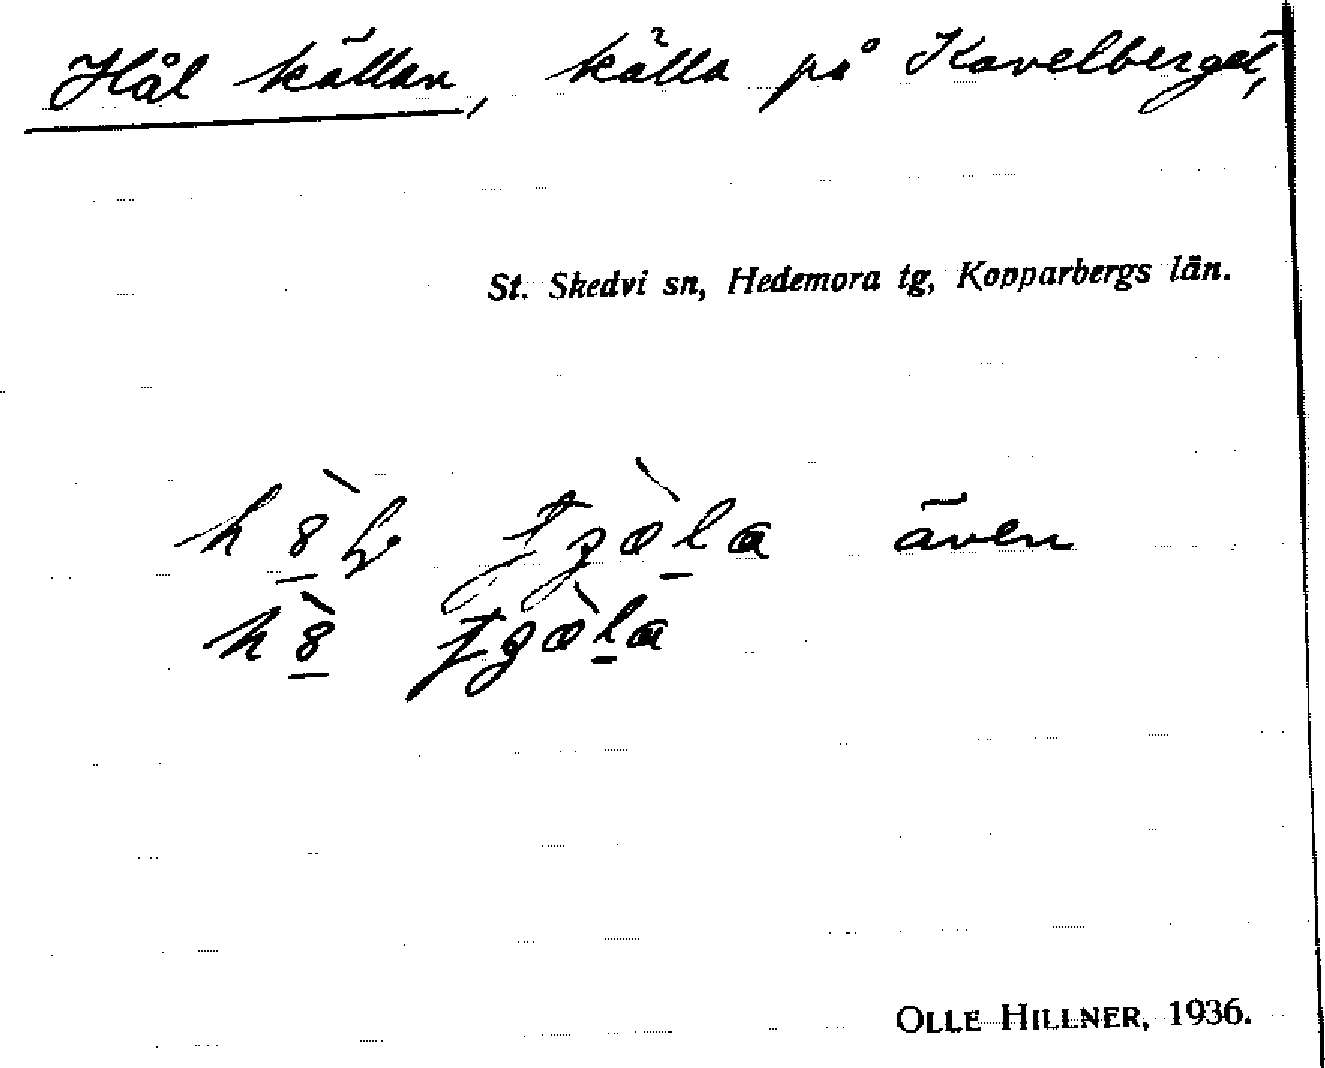 Hål källan, källa på Kavelberget,
St. Skedvi sn, Hedemora tg, Kopparbergs län.
även
OLLE HILLNER, 1936.